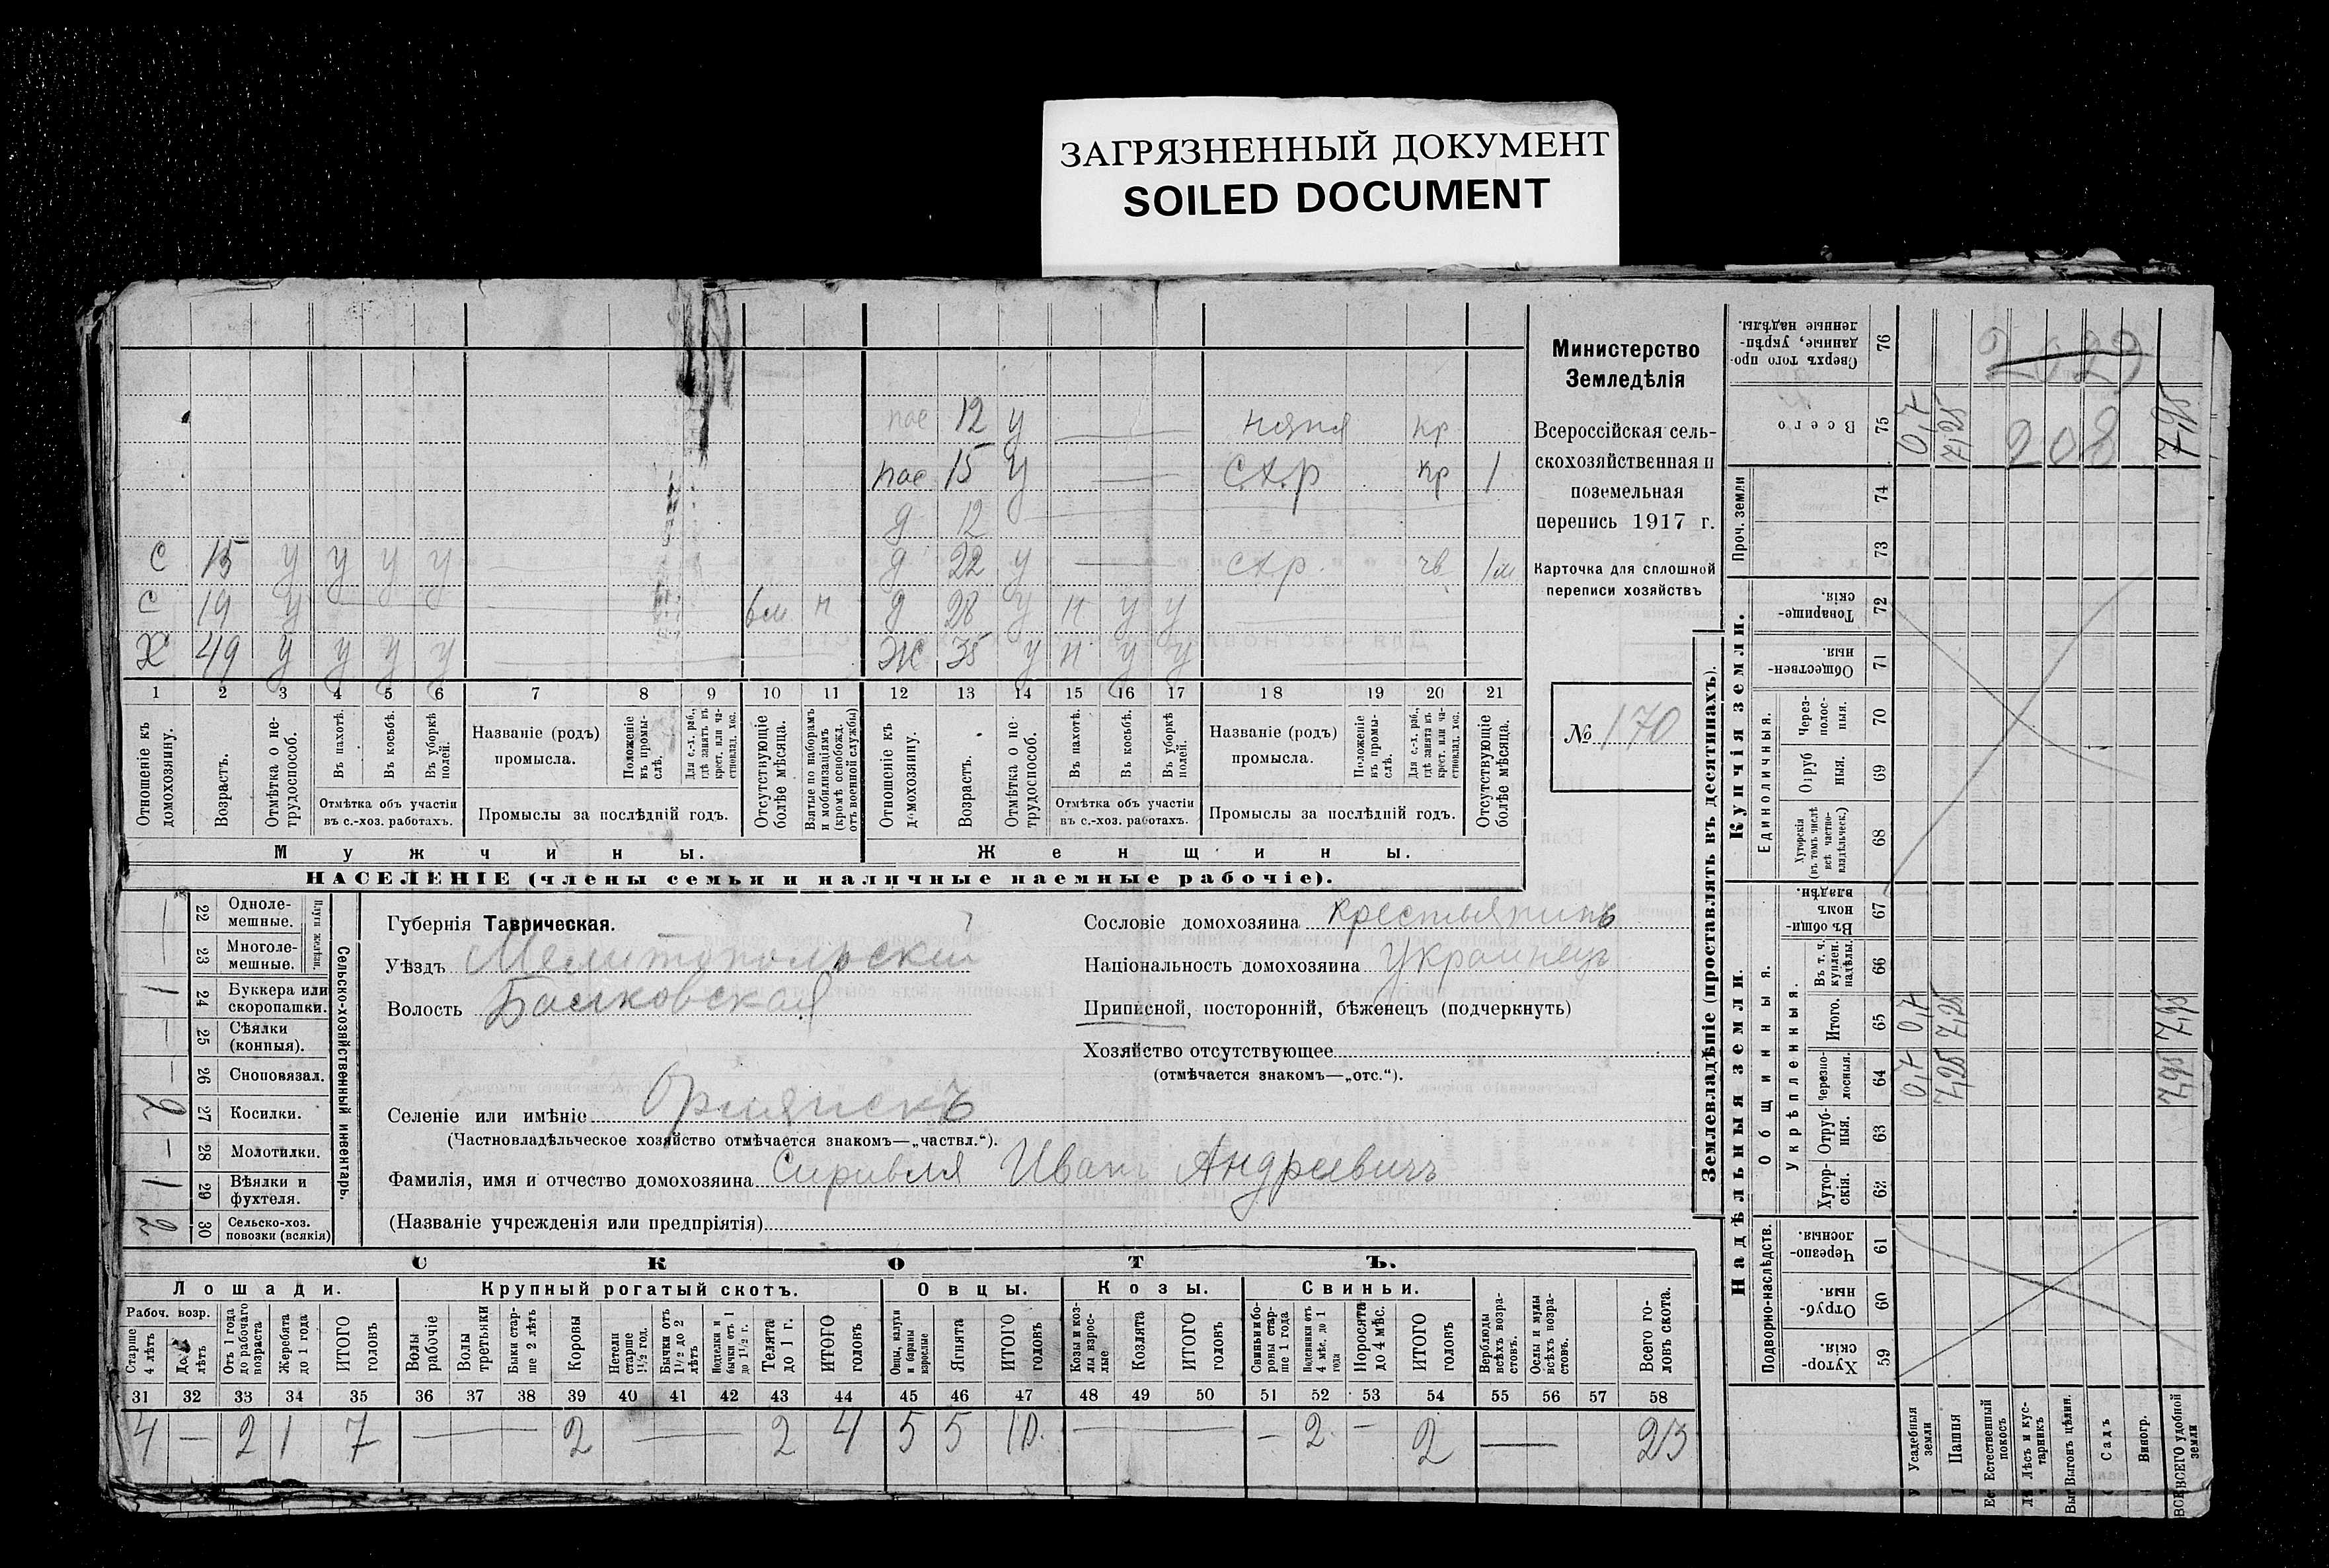 ЗАГРЯЗНЕННЫЙ ДОКУМЕНТ
SOILED DOCUMENT
пас 12 у няня кр
пас 15 у с.х.р кр 1
д 12
с 15 у у у у д 22 у с.х.р. 1м
с 19 у 6м н д 28 у н у у
Х 49 у у у у Ж 35 у н у у
1 2 3 4 5 6 7 8 9 10 11 12 13 14 15 16 17 18 19 20 21
Отношеніе къ домохозяину.
Возрастъ.
Отмѣтка о нетрудоспособ.
Въ пахотѣ.
Въ косьбѣ.
Въ уборкѣ полей.
Отмѣтка объ участіи въ с.-хоз. работахъ.
Названіе (родъ) промысла.
Положеніе въ промыслѣ,
Для с.-х. раб., гдѣ занятъ въ крест. или частновлад. хоз.
Промыслы за послѣдній годъ.
Отсутствующіе болѣе мѣсяца.
Взятые по наборамъ и мобилизаціямъ (кромѣ освобожд. отъ военной службы)
Отношеніе къ домохозяину.
Возрастъ.
Отмѣтка о нетрудоспособ.
Въ пахотѣ.
Въ косьбѣ.
Въ уборкѣ полей.
Отмѣтка объ участіи въ с.-хоз. работахъ.
Названіе (родъ) промысла.
Положеніе въ промыслѣ.
Для с.-х. раб., гдѣ занята въ крест. или частновлад. хоз.
Промыслы за послѣдній годъ.
Отсутствующіе болѣе мѣсяца.
Мужчины. Женщины.
НАСЕЛЕНІЕ (члены семьи и наличные наемные рабочіе).
Министерство
Земледѣлія
Всероссійская сель-
скохозяйственная и
поземельная
перепись 1917 г.
Карточка для сплошной
переписи хозяйствъ
№ 170
Сельско-хозяйственный инвентарь.
Плуги желѣзн.
— 22 Однолемешные.
— 23 Многолемешные.
1 24 Буккера или скоропашки.
— 25 Сѣялки (конныя).
— 26 Сноповязал.
2 27 Косилки.
— 28 Молотилки.
1 29 Вѣялки и фухтеля.
2 30 Сельско-хоз. повозки (всякія)
Губернія Таврическая.
Уѣздъ Мелитопольскій
Волость Балковская
Селеніе или имѣніе
(Частновладѣльческое хозяйство отмѣчается знакомъ—„частвл.“).
Фамилія, имя и отчество домохозяина Иванъ Андреевичъ
(Названіе учрежденія или предпріятія)
Сословіе домохозяина крестьянинъ
Національность домохозяина Украинецъ
Приписной, посторонній, бѣженецъ (подчеркнуть)
Хозяйство отсутствующее
(отмѣчается знакомъ—„отс.“).
СКОТЪ.
Лошади. Крупный рогатый скотъ. Овцы. Козы. Свиньи.
Рабоч. возр.
Старше 4 лѣтъ
До 4 лѣтъ
Отъ 1 года до рабочаго возраста
Жеребята до 1 года
ИТОГО головъ
Волы рабочіе
Волы третьяки
Быки старше 2 лѣтъ
Коровы
Нетели старше 1½ год.
Бычки отъ 1½ до 2 лѣтъ
Нетели и бычки отъ 1 до 1½ г.
Телята до 1 г.
ИТОГО головъ
Овцы, валухи и бараны взрослые
Ягнята
ИТОГО головъ
Козы и козлы взрослые
Козлята
ИТОГО головъ
Свиньи и боровы старше 1 года
Подсвинки отъ 4 мѣс. до 1 года
Поросята до 4 мѣс.
ИТОГО головъ
Верблюды всѣхъ возрастовъ.
Ослы и мулы всѣхъ возрастовъ.
Всего головъ скота.
31 32 33 34 35 36 37 38 39 40 41 42 43 44 45 46 47 48 49 50 51 52 53 54 55 56 57 58
4 — 2 1 7 — 2 — 2 4 5 5 10. — — 2 — 2 — 23
Землевладѣніе (проставлять въ десятинахъ).
Надѣльныя земли. Купчія земли.
Сверхъ того проданные, укрѣпленные надѣлы. 76
Всего 75 0,7 7,25 208 7,95
Проч. земли 74 73
Товарищескія. 72
Общественныя. 71
Единоличныя.
Черезполосныя. 70
Отрубныя. 69
Хуторскія (въ томъ числѣ всѣ частновладѣльческ.) 68
Общинныя.
Въ общинномъ владѣн. 67
Укрѣпленныя.
Въ т. ч. куплен. надѣлы. 66
Итого. 65 0,7 7,25 7,95
Черезполосныя. 64 0,7 7,25 7,95
Отрубныя. 63
Хуторскія. 62
Подворно-наслѣдств.
Черезполосныя. 61
Отрубныя. 60
Хуторскія. 59
Усадебныя земли
Пашня
Естественный покосъ
Лѣсъ и кустарникъ
Выгонъ цѣлин.
Садъ
Виногр.
ВСЕГО удобной земли